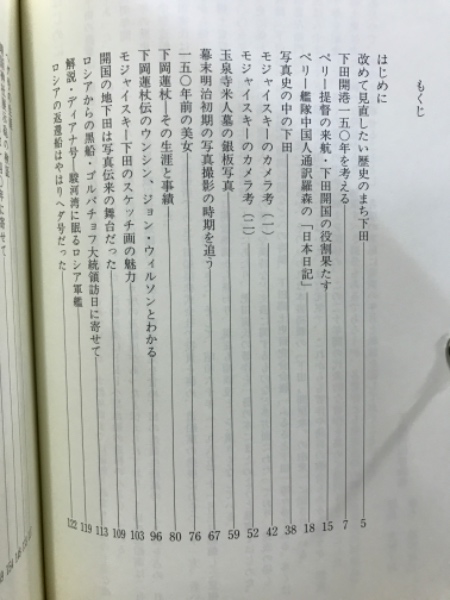 もくじ
はじめに
改めて見直したい歴史のまち下田 5
下田開港一五〇年を考える 7
ペリー提督の来航・下田開国の役割果たす 15
ペリー艦隊中国人通訳羅森の「日本日記」 18
写真史の中の下田 38
モジャイスキーのカメラ考(一) 42
モジャイスキーのカメラ考(二) 52
玉泉寺米人墓の銀板写真 59
幕末明治初期の写真撮影の時期を追う 67
一五〇年前の美女 76
下岡蓮杖―その生涯と事績 80
下岡蓮杖伝のウンシン、ジョン・ウィルソンとわかる 96
モジャイスキー下田のスケッチ画の魅力 103
開国の地下田は写真伝来の舞台だった 109
ロシアからの黒船・ゴルバチョフ大統領訪日に寄せて 113
解説・ディアナ号―駿河湾に眠るロシア軍艦 119
ロシアの返還船はやはりヘダ号だった 122